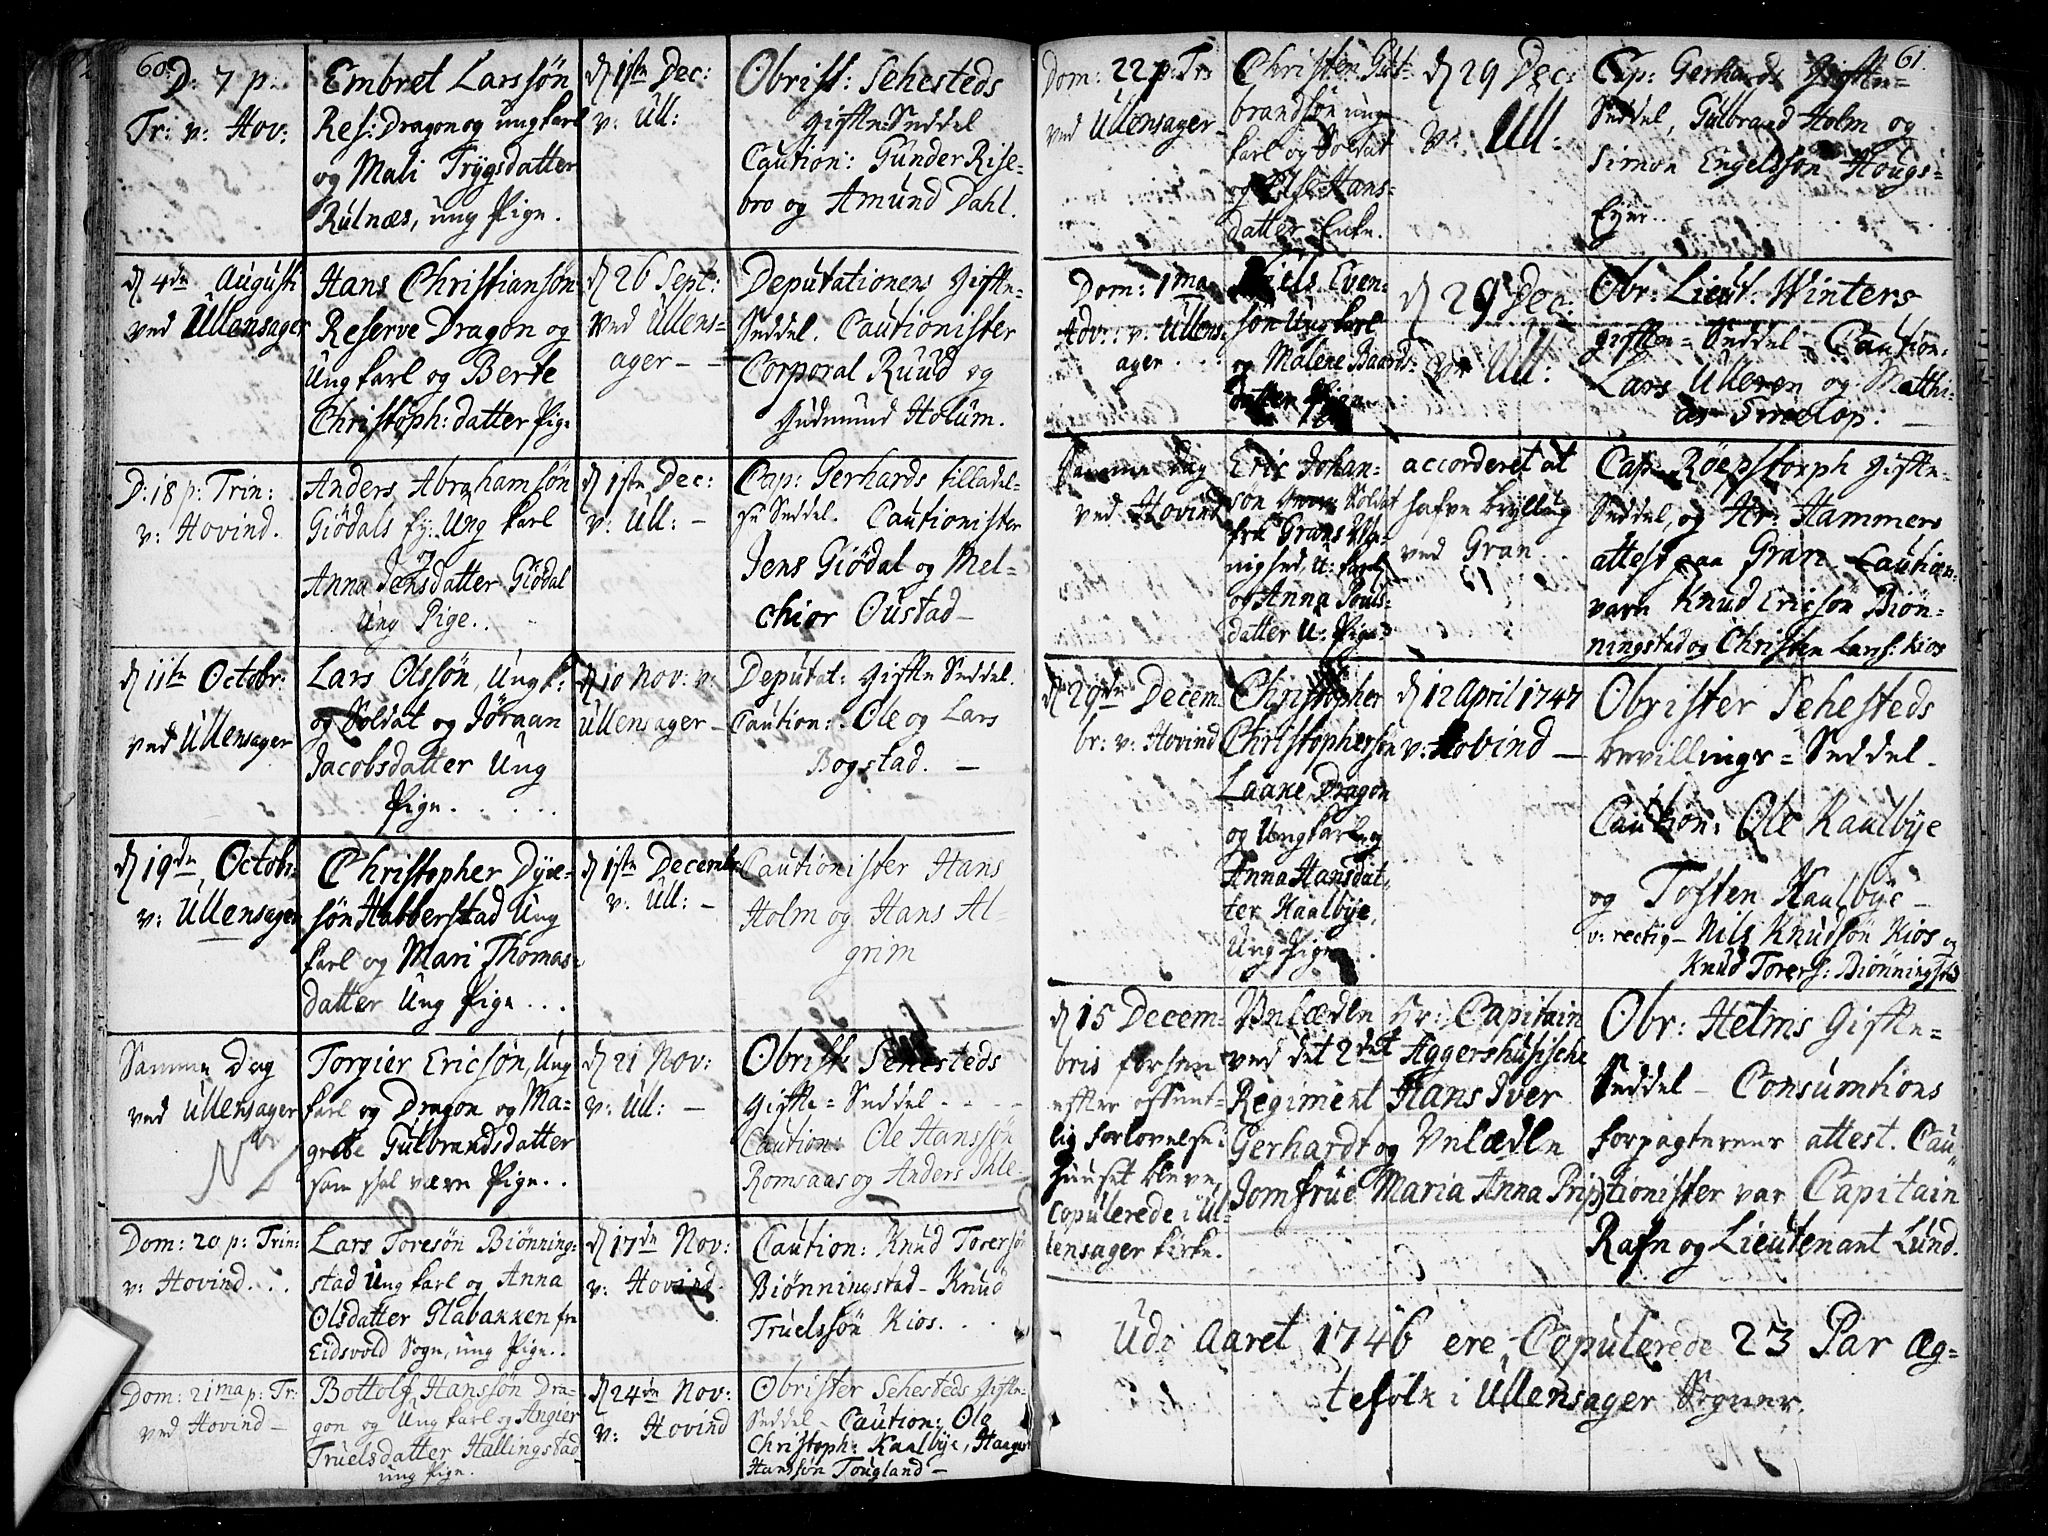 60.
D: 7 p:
Tr: v: Hov:
Embret Larssøn
Res: Dragon og ung karl
og Mali Trygsdatter
Rulnæs, ung Pige.
d 1ste Dec:
v: Ull:
Obrist: Sehesteds
gifte-Seddel
Caution: Gunder Rise-
bro og Amund Dahl.
d 4de Augusti
ved Ullensager
Hans Christiansøn
Reserve Dragon og
Ung karl og Berte
Christoph: datter Pige
d 26 Sept:
ved Ullens-
ager - -
Deputationens gifte-
Seddel. Cautionister
Corporal Ruud og
Gudmund Holum.
D: 18 p: Trin:
v: Hovind.
Anders Abrahamsøn
Giödals Ey: Ung karl
og
Anna Jensdatter Giödal
Ung Pige..
d 1ste Dec:
v: Ull: -
Cap: Gerhards tilladel-
se Seddel. Cautionister
Jens Giödal og Mel-
chior Oustad -
d 11te Octobr:
ved Ullensager
Lars Olssön, Ung k:
og Soldat og Jöraan
Jacobsdatter Ung
Pige. . . . .
d 10 Nov: v:
Ullensager -
Deputat: gifte Seddel.
Caution: Ole og Lars
Bogstad. -
d 19de Octobr:
v: Ullensager
Christopher Dÿre-
søn Habberstad Ung
karl og Mari Thomas-
datter Ung Pige . . .
d 1ste Decembr:
v: Ull: -
Cautionister Hans
Holm og Hans Al-
grim
Samme Dag
ved Ullensager
Torgier Ericsön, Ung
karl og Dragon og Ma-
grete Gulbrandsdatter
som skal være Pige. .
d 21 Nov:
v: Ull: -
Obrist: Sehesteds
gifte-Seddel - - - -
Caution: Ole Hanssön
Romsaas og Anders Ihle-
Dom: 20 p: Trin:
v: Hovind. . .
Lars Toresön Biönning-
stad Ung karl og Anna
Olsdatter Glabakken fra
Eidsvold Sogn, ung Pige..
d 17de Nov:
v: Hovind
Caution: Knud Toresön
Biönningstad - Knud
Truelssön Kios. . .
Dom: 21ma p: Tr:
ved Hovind -
Bottolf Hanssön Dra-
gon og Ung karl og Angier
Truelsdatter Hallingstad
ung Pige.
d 24de Nov:
v: Hovind
Obrister Sehesteds gifte-
Seddel - Caution: Ole
Christoph: Kaalbye,
Hanssön Tougland -
61.
Dom: 22 p: Tr:
ved Ullensager -
Christen Gul-
brandsön ung
karl og Soldat
og Else Hans-
datter Enke.
d 29 Dec:
v: Ull:
Cap: Gerhards Gifte-
Seddel, Gulbrand Holm og
Simon Engelssön Hougs-
Eyer . .
Dom: 1ma
Adv: v: Ullens-
ager . . .
Niels Even-
sön Ung karl
og Malene Baards-
datter Pige
d 29 Dec:
v: Ull:
Obr: Lieut: Winters
gifte-Seddel - Caution:
Lars Ulleren og Matthi-
as Smelop. -
Samme Dag
ved Hovind
Eric Johan-
sön Soldat
fra Grans Me-
nighed, U: karl
og Anna Pouls-
datter U: Pige
accorderet at
hafve brÿllup
ved Gran . .
Cap: Röepstorph gifte-
Seddel, og Hr: Hammers
attest paa Gran. Caution:
vare Knud Ericsön Biön-
ningstad og Christen Larss: Kios
d 29de Decem-
br: v: Hovind
Christopher
Christophersön
Laake, Dragon
og Ung karl og
Anna Hansdat-
ter Kaalbÿe,
Ung Pige
d 12 April 1747
v: Hovind -
Obrister Sehesteds
bevillings-Seddel -
Caution: Ole Kaalbÿe
og Tosten Kaalbÿe -
v: rectig - Nils Knudsön Kios og
Knud Torers: Biönningstad
d 15 Decem-
bris forhen
efter offent-
lig forlovelse i
Huuset bleve
Copulerede i Ul-
lensager kirke.
Velædle Hr: Capitain
ved det 2det Aggershusische
Regiment Hans Iver
Gerhardt og Velædle
Jomfrue Maria Anna Prip
Obr: Helms Gifte-
Seddel - Consumtions
forpagterens attest. Cau-
tionister var Capitain
Rafn og Lieutenant Lund.
Udi Aaret 1746 ere Copulerede 23 Par Æg-
tefolk i Ullensager Sogner.